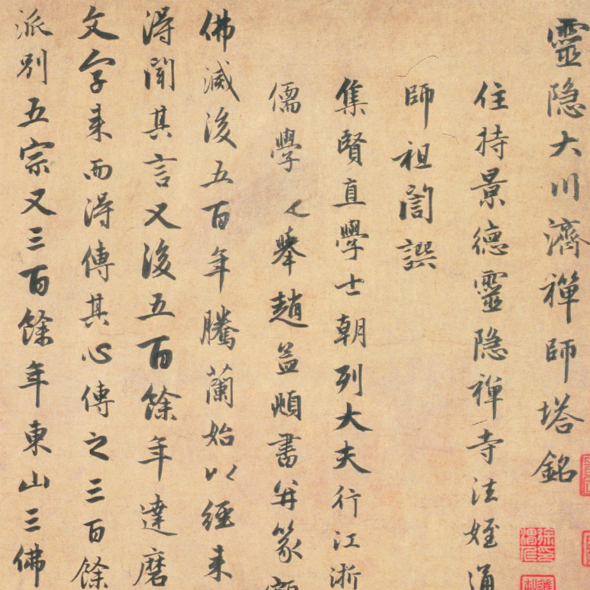 靈隐大川濟禪師塔銘
住持景德靈隐禪寺法姪通
師祖誾譔
集賢直學士朝列大夫行江浙
儒學舉趙孟頫書并篆額
佛滅後五百年騰蘭始以經来
得聞其言又後五百餘年達磨
文字来而得傳其心傳之三百餘
派别五宗又三百餘年東山三佛